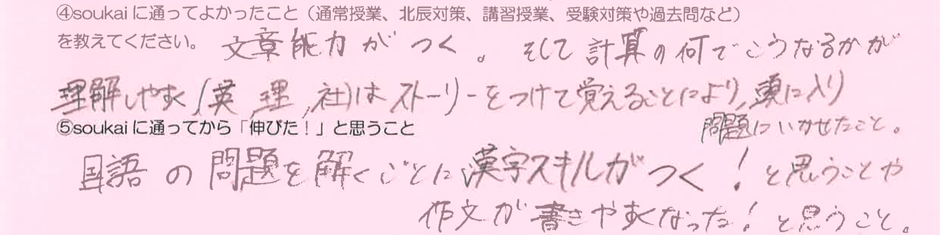 ④soukaiに通ってよかったこと（通常授業、北辰対策、講習授業、受験対策や過去問など）
を教えてください。 文章能力がつく。そして計算の何でこうなるかが
理解しやすく、(英、理、社)はストーリーをつけて覚えることにより、頭に入り
問題にいかせたこと。
⑤soukaiに通ってから「伸びた！」と思うこと
国語の問題を解くごとに漢字スキルがつく！と思うことや
作文が書きやすくなった！と思うこと。